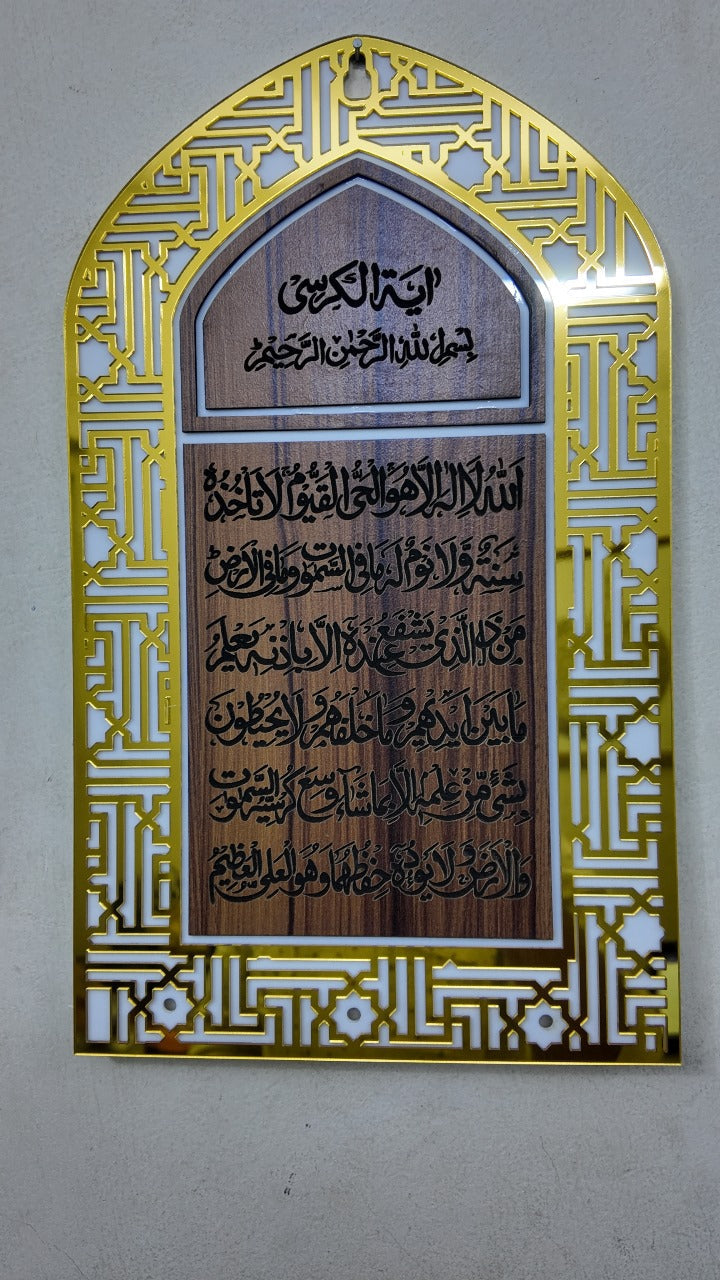 اٰیة الکرسی
بسم الله الرحمٰن الرحیم
اَللّٰهُ لَا اِلٰهَ اِلَّا هُوَ الْحَیُّ الْقَیُّوْمُ لَا تَاْخُذُهٗ
سِنَةٌ وَّلَا نَوْمٌ لَهٗ مَا فِی السَّمٰوٰتِ وَمَا فِی الْاَرْضِ
مَنْ ذَا الَّذِیْ یَشْفَعُ عِنْدَهٗ اِلَّا بِاِذْنِهٖ یَعْلَمُ
مَا بَیْنَ اَیْدِیْهِمْ وَمَا خَلْفَهُمْ وَلَا یُحِیْطُوْنَ
بِشَیْءٍ مِّنْ عِلْمِهٖ اِلَّا بِمَا شَآءَ وَسِعَ كُرْسِیُّهُ السَّمٰوٰتِ
وَالْاَرْضَ وَلَا یَئُوْدُهٗ حِفْظُهُمَا وَهُوَ الْعَلِیُّ الْعَظِیْمُ